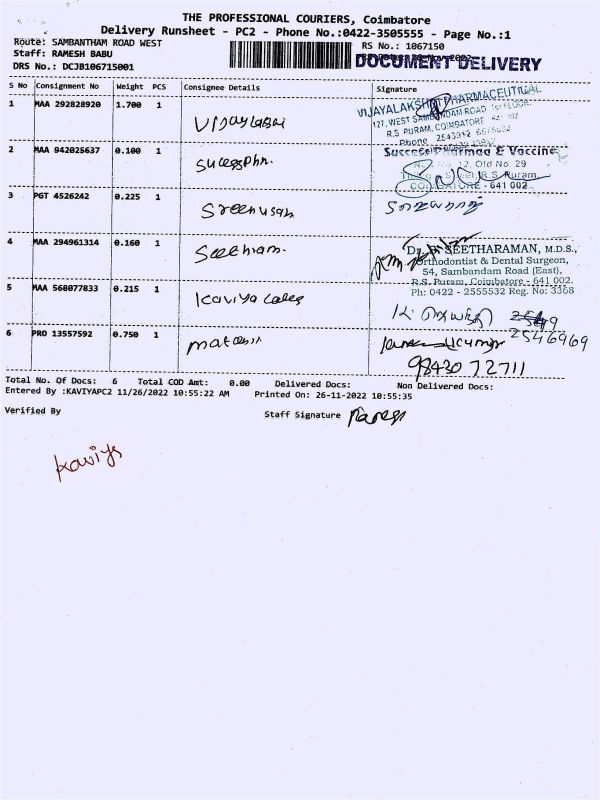 THE PROFESSIONAL COURIERS, Coimbatore
Delivery Runsheet - PC2 - Phone No.:0422-3505555 - Page No.:1
Route: SAMBANTHAM ROAD WEST
RS No.: 1067150
Staff: RAMESH BABU
DOCUMENT DELIVERY
DRS No.: DCJB106715001
S No Consignment No Weight PCS Consignee Details Signature
1 MAA 292828920 1.700 1
VIJAYALAKSHMI PHARMACEUTICAL
127, WEST SAMBANDAM ROAD
R.S. PURAM, COIMBATORE
Phone
2 MAA 942025637 0.100 1
Success Pharmaa & Vaccines
12, Old No. 29
R.S. Puram,
COIMBATORE - 641 002
3 PGT 4526242 0.225 1
4 MAA 294961314 0.160 1 Seethram.
Dr. SEETHARAMAN, M.D.S.,
Orthodontist & Dental Surgeon,
54, Sambandam Road (East),
R.S. Puram, Coimbatore - 641 002.
Ph: 0422 - 2555532 Reg. No: 3368
5 MAA 568077833 0.215 1 Kaviya
6 PRO 13557592 0.750 1
2546969
98430 72711
Total No. Of Docs: 6 Total COD Amt: 0.00 Delivered Docs: Non Delivered Docs:
Entered By :KAVIYAPC2 11/26/2022 10:55:22 AM Printed On: 26-11-2022 10:55:35
Verified By
Staff Signature Ramesh
Kaviya